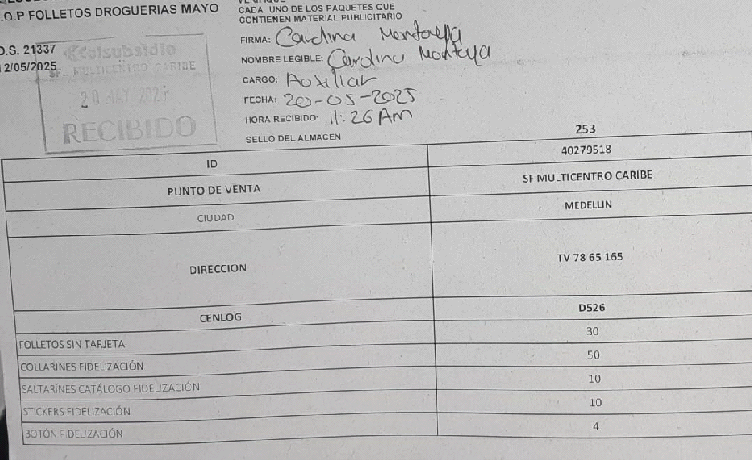 O.P FOLLETOS DROGUERIAS MAYO
O.S. 21337
12/05/2025
CADA UNO DE LOS PAQUETES QUE
CONTIENEN MATERIAL PUBLICITARIO
FIRMA: Carolina Montoya
NOMBRE LEGIBLE Carolina Montoya
CARGO: Auxiliar
FECHA: 20-05-2025
HORA RECIBIDO: 1:26 Am
SELLO DEL ALMACEN
Colsubsidio
SF MULTICENTRO CARIBE
RECIBIDO
253
ID 40279518
PUNTO DE VENTA SF MULTICENTRO CARIBE
CIUDAD MEDELLIN
DIRECCION TV 78 65 165
CENLOG D526
FOLLETOS SIN TARJETA 30
COLLARINES FIDELIZACIÓN 50
SALTARINES CATÁLOGO FIDELIZACIÓN 10
STICKERS FIDELIZACIÓN 10
BOTÓN FIDELIZACIÓN 4